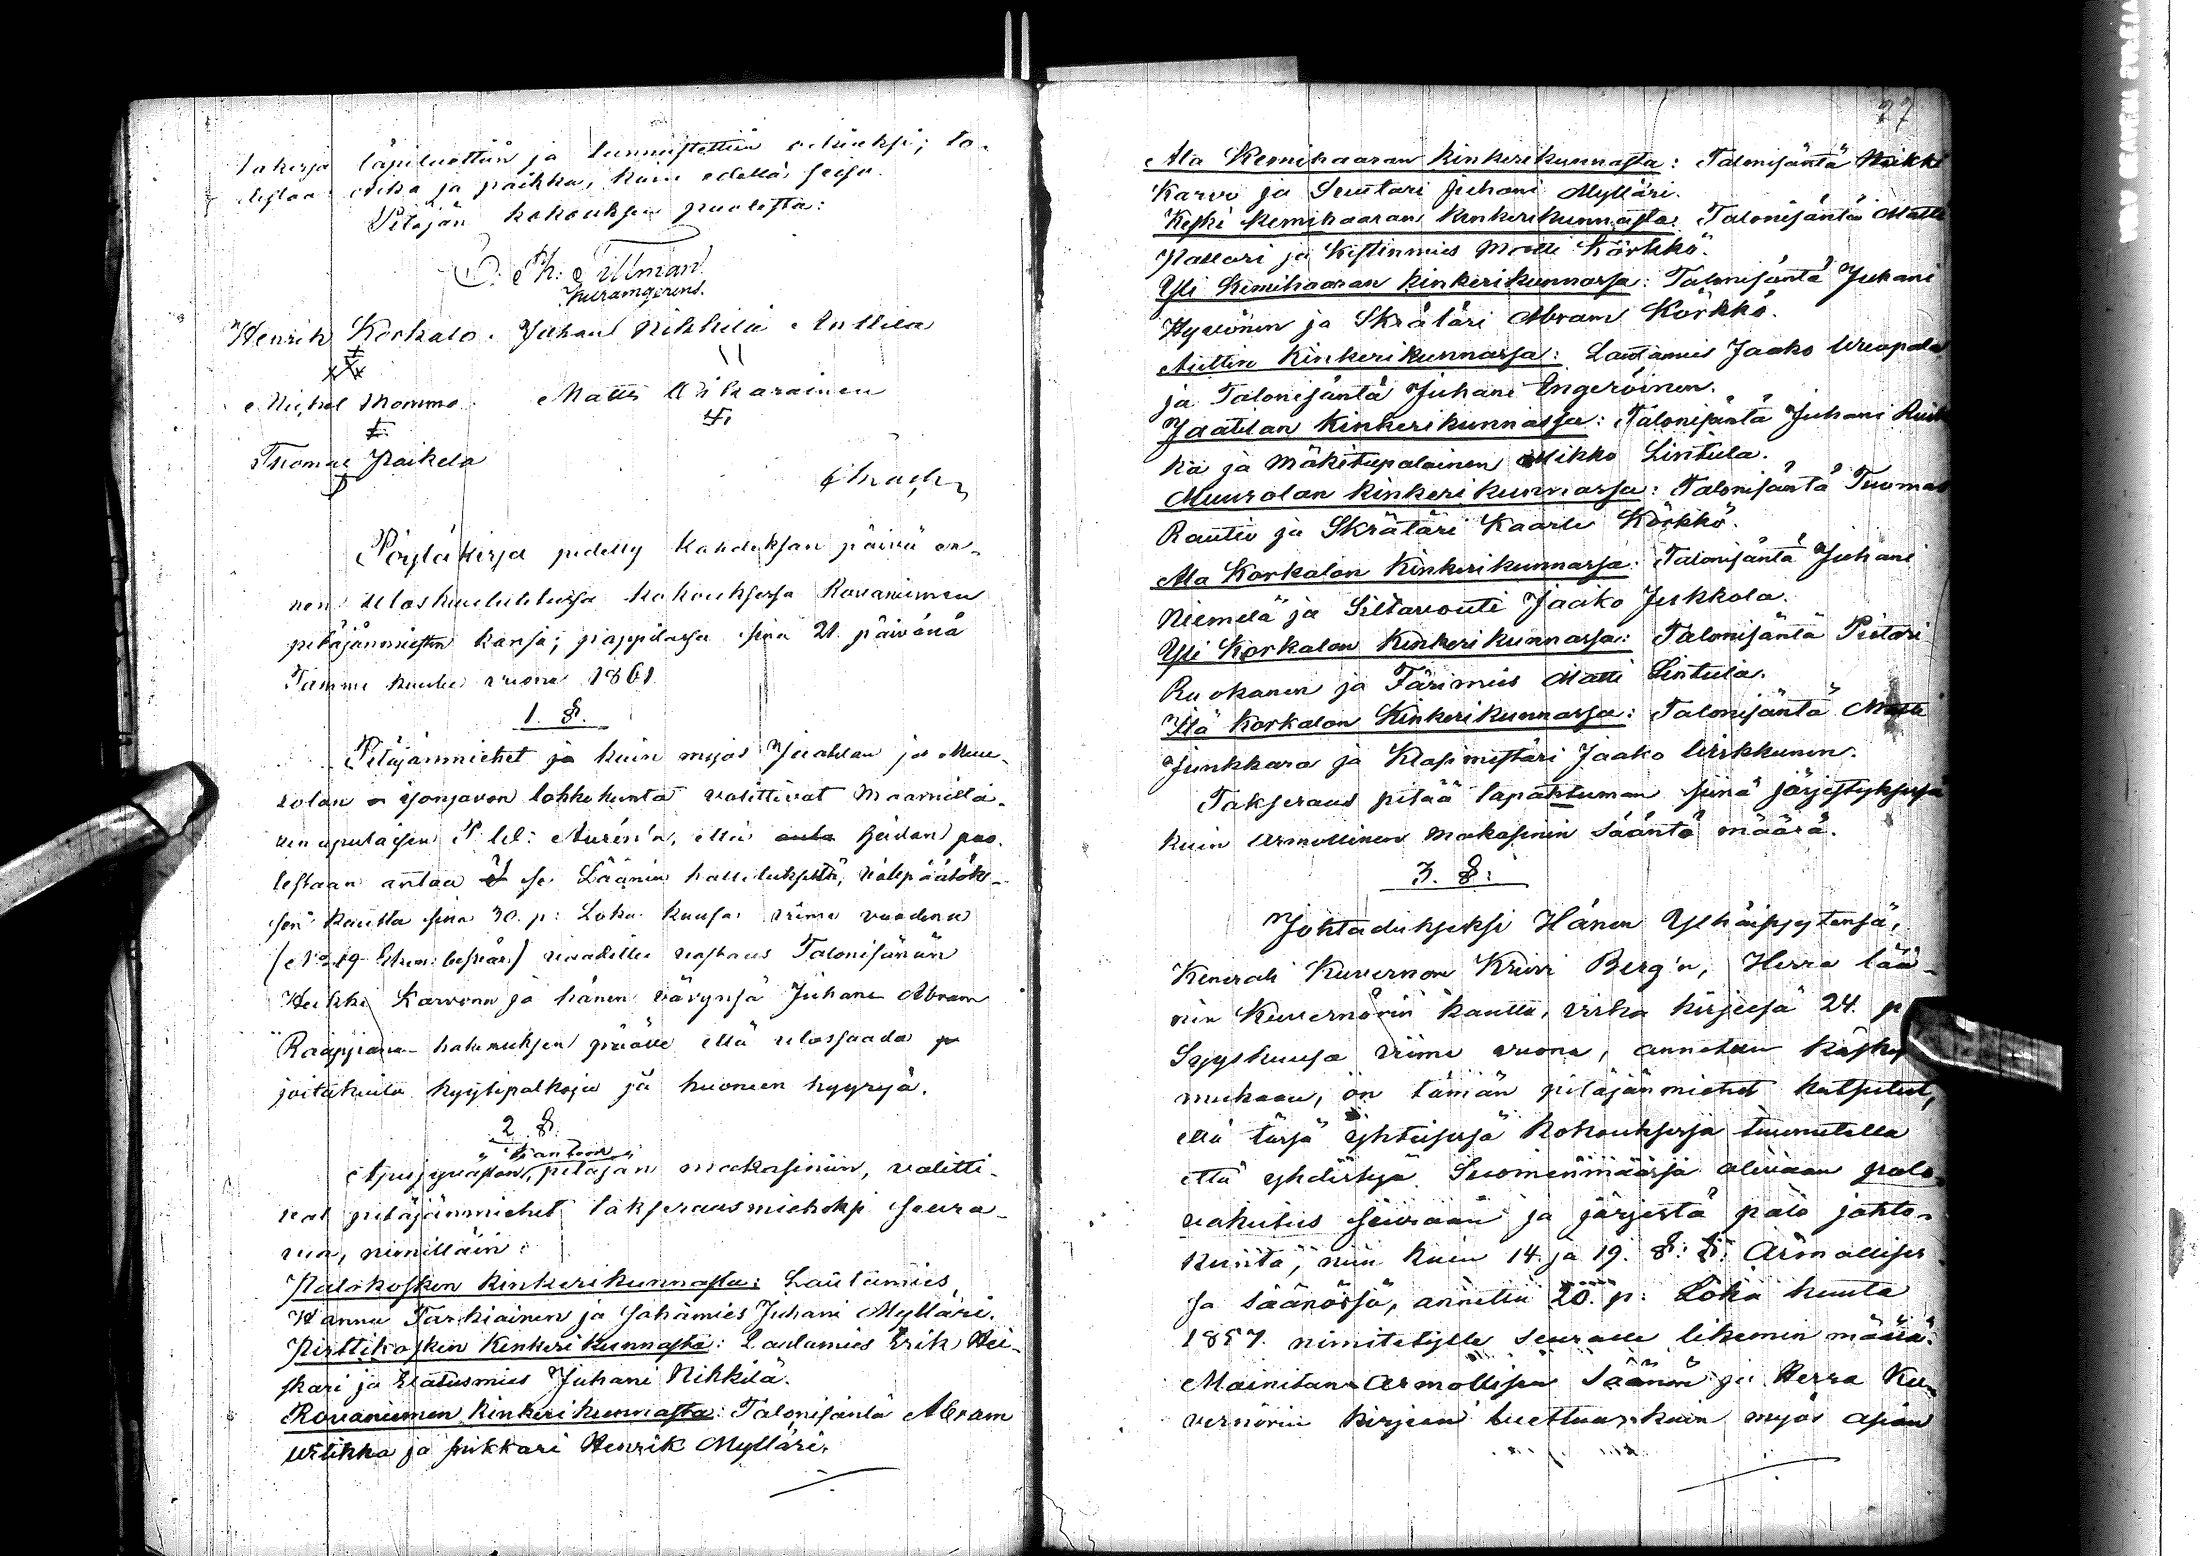 takirja läpiluettiin ja tunnustettiin oikiaksi; to-
distaa aika ja paikka, kuin edellä seisoo.
Pitäjän kokouksen puolesta:
O. Ph: Tillman
kuramgerens.
Henrik Korkalo. Juhani Nikkilä Anttila
Michel Mommo. Matti Wikarainen
Thomas Paikela
Pöytäkirja pidetty kahdeksan päivää en-
nen uloskuulutetussa kokouksessa Rovaniemen
pitäjänmiesten kansa; pappilassa sinä 21. päivänä
Tammi kuuta vuona 1861
1. §.
Pitäjänmiehet ja kuin myös Jaatilan ja Muu-
rolan lohkokunta valittivat Maamitta-
rin apulaisen Aurén'n, että heidän puo-
lestaan antaa Läänin hallitukselta, välipäätök-
sen kautta sinä 30. p: Loka kuusa viime vuodena
vaadittu vastaus Talonisänän
Heikki Karvon ja hänen vävynsä Juhani Abram
Raappana hakemuksen päälle että ulossaada
joitakuita kyytipalkoja ja huoneen hyyryjä.
2 §.
pitäjän makasiniin, valitti-
vat pitäjänmiehet takseerausmiehiksi seura-
van, nimittäin:
Palokosken kinkerikunnasta: Lautamies
Hannu Tarkiainen ja sahamies Juhani Mylläri.
Pirttikosken Kinkerikunnasta: Lautamies Erik Hei-
skari ja Elatusmies Juhani Nikkilä.
Rovaniemen kinkerikunnasta: Talonisäntä Abram
Ulikka ja pikkari Henrik Mylläri.
77
Ala Kemihaaran kinkerikunnasta: Talonisäntä Heikki
Karvo ja Suutari Juhani Mylläri.
Keski Kemihaaran kinkerikunnasta: Talonisäntä Matti
Pallari ja Kistinmies Matti Körkkö.
Yli Kemihaaran kinkerikunnassa: Talonisäntä Juhani
Hyvönen ja Skrätäri Abram Körkkö.
Auttin kinkerikunnassa: Lautamies Jaako Ureapala
ja Talonisäntä Juhani Engeröinen.
Jaatilan kinkerikunnassa: Talonisäntä Juhani Ruik
ka ja Mäkitupalainen Mikko Lintula.
Muurolan kinkerikunnassa: Talonisäntä Tuomas
Rautio ja Skrätäri Kaarle Körkkö.
Ala Korkalon Kinkerikunnassa: Talonisäntä Juhani
Niemelä ja Siltavouti Jaako Jukkola.
Yli Korkalon Kinkerikunnassa: Talonisäntä Pietari
Ruokanen ja Färimies Matti Lintula.
Itä Korkalon Kinkerikunnassa: Talonisäntä Matti
Junkkara ja Klasimestäri Jaako Wirkkunen.
Takseraus pitää tapahtuman siinä järjestyksesä
kuin Armollinen Makasinin sääntö määrä.
3. §:
Johtaduksesksi Hänen Ylhäisyytensä,
Kenrali Kuvernöri Kreivi Berg'n, Herra lää-
nin Kuvernörin kautta, virka kirjeesä 24. p
Syyskuusa viime vuona, annetun käsky
mukaan, on tämän pitäjänmiehet kutsutut,
että täsä yhteisesä kokouksessa tuumitella
että yhdistyä Suomenmaassa olevaan palo
vakutus seuraan ja järjestä palo johto-
kunta, niin kuin 14. ja 19. §: §: Armollises
sa säänössä, annettu 20. p: Loka kuuta
1857. nimitetylle seuralle likemin määrä.
Mainitan Armollisen Säänön ja Herra Ku-
vernörin kirjeen luettua, kuin myös asian